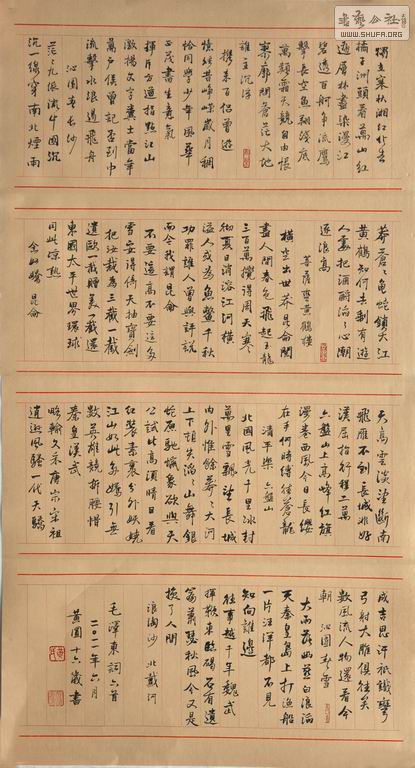 獨立寒秋湘江北去
橘子洲頭看萬山紅
遍層林盡染漫江
碧透百舸爭流鷹
擊長空魚翔淺底
萬類霜天競自由悵
寥廓問蒼茫大地
誰主沉浮
攜來百侶曾遊
憶往昔崢嶸歲月稠
恰同學少年風華
正茂書生意氣
揮斥方遒指點江山
激揚文字糞土當年
萬戶侯曾記否到中
流擊水浪遏飛舟
沁園春長沙
茫茫九派流中國沉
沉一線穿南北煙雨
莽蒼蒼龜蛇鎖大江
黃鶴知何去剩有遊
人處把酒酹滔滔心潮
逐浪高
菩薩蠻黃鶴樓
橫空出世莽昆侖閱
盡人間春色飛起玉龍
三百萬攪得周天寒
徹夏日消溶江河橫
溢人或為魚鱉千秋
功罪誰人曾與評說
而今我謂昆侖
不要這高不要這多
雪安得倚天抽寶劍
把汝裁為三截一截
遺歐一截贈美一截還
東國太平世界環球
同此涼熱
念奴嬌 昆侖
天高雲淡望斷南
飛雁不到長城非好
漢屈指行程二萬
六盤山上高峰紅旗
漫卷西風今日長纓
在手何時縛住蒼龍
清平樂 六盤山
北國風光千里冰封
萬里雪飄望長城
內外惟餘莽莽大河
上下頓失滔滔山舞銀
蛇原馳蠟象欲與天
公試比高須晴日看
紅裝素裹分外妖嬈
江山如此多嬌引無
數英雄競折腰惜
秦皇漢武
略輸文采唐宗宋祖
稍遜風騷一代天驕
成吉思汗祇識彎
弓射大雕俱往矣
數風流人物還看今
朝 沁園春雪
大雨落幽燕白浪滔
天秦皇島上打漁船
一片汪洋都不見
知向誰邊
往事越千年魏武
揮鞭東臨碣石有遺
篇蕭瑟秋風今又是
換了人間
浪淘沙 北戴河
毛澤東詞六首
二〇一一年六月
黃圓十六歲書
WWW.SHUFA.ORG